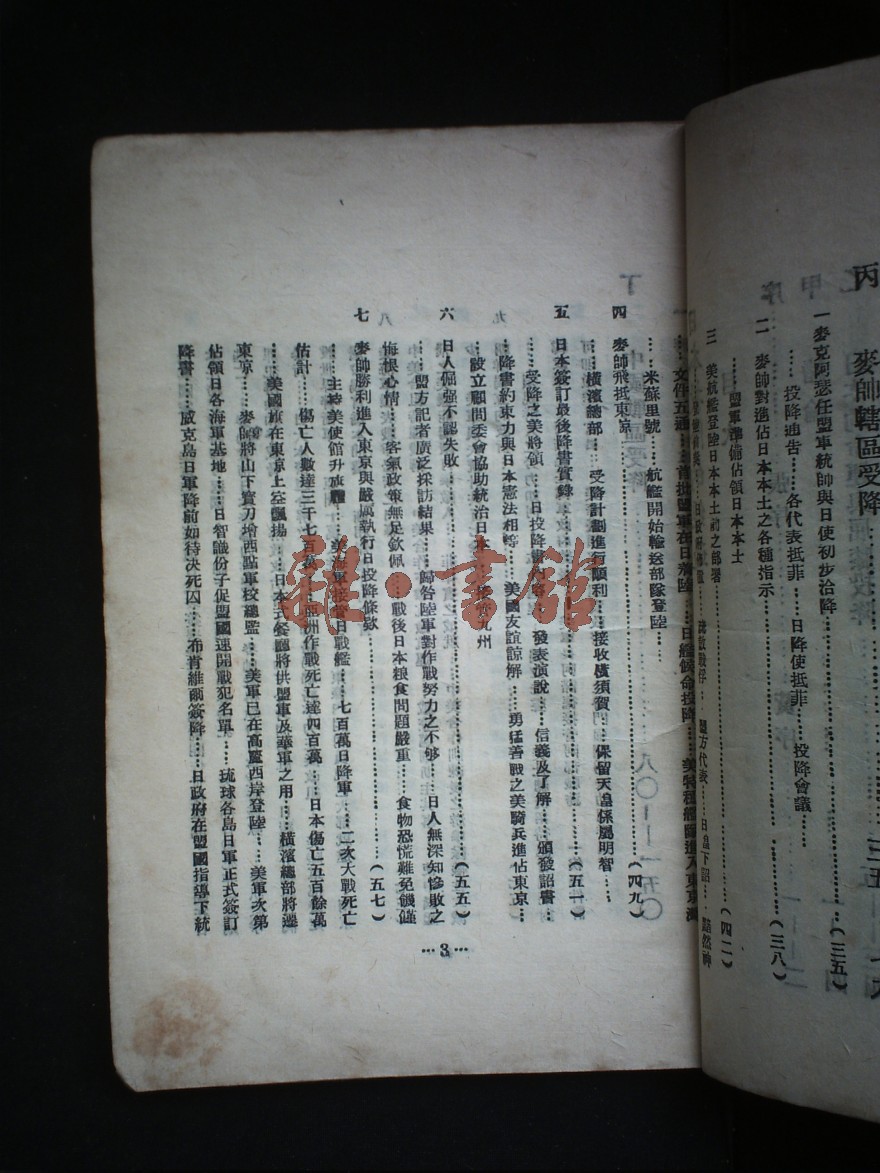 丙 麥帥轄區受降
一 麥克阿瑟任盟軍統帥與日使初步洽降
……投降通告……各代表抵菲……日降使抵菲……投降會議……(三五)
二 麥帥對進佔日本本土之各種指示……(三八)
……盟軍準備佔領日本本土
三 美抗艦登陸日本本土初之部署……(四二)
米蘇里號……航艦開始輸送部隊登陸……
四 麥帥飛抵東京……(四九)
……橫濱總部……受降計劃進行順利……接收橫須賀……保留天皇係屬明智……
五 日本簽訂最後降書實錄……(五一)
……受降之美將領……發表演說……信義及了解……頒發詔書……
降書約束力與日本憲法相等……美國友誼諒解……勇猛善戰之美騎兵進佔東京……
設立顧問委會協助統治日本……九州
六 日人倔强不認失敗……(五五)
……盟方記者廣泛採訪結果……歸咎陸軍對作戰努力之不够……日人無深知慘敗之
悔恨心情……客氣政策無足欽佩……戰後日本粮食問題嚴重……食物恐慌難免饑饉
七 麥帥勝利進入東京與嚴厲執行日投降條欵……(五七)
……主持美使館升旗禮……美海軍接管日戰艦……七百萬日降軍……二次大戰死亡
估計……傷亡人數達三千七百萬……亞洲作戰死亡達四百萬……日本傷亡五百餘萬
……美國旗在東京上空飄揚……日本式餐廳將供盟軍及華軍之用……橫濱總部將遷
東京……麥帥將山下寶刀增西點軍校總監……美軍已在高麗西岸登陸……美軍次第
佔領日各海軍基地……日智識份子促盟國速開戰犯名單……琉球各島日軍正式簽訂
降書……威克島日軍降前如待決死囚……布肯維爾簽降……日政府在盟國指導下統
…3…
雜·書館